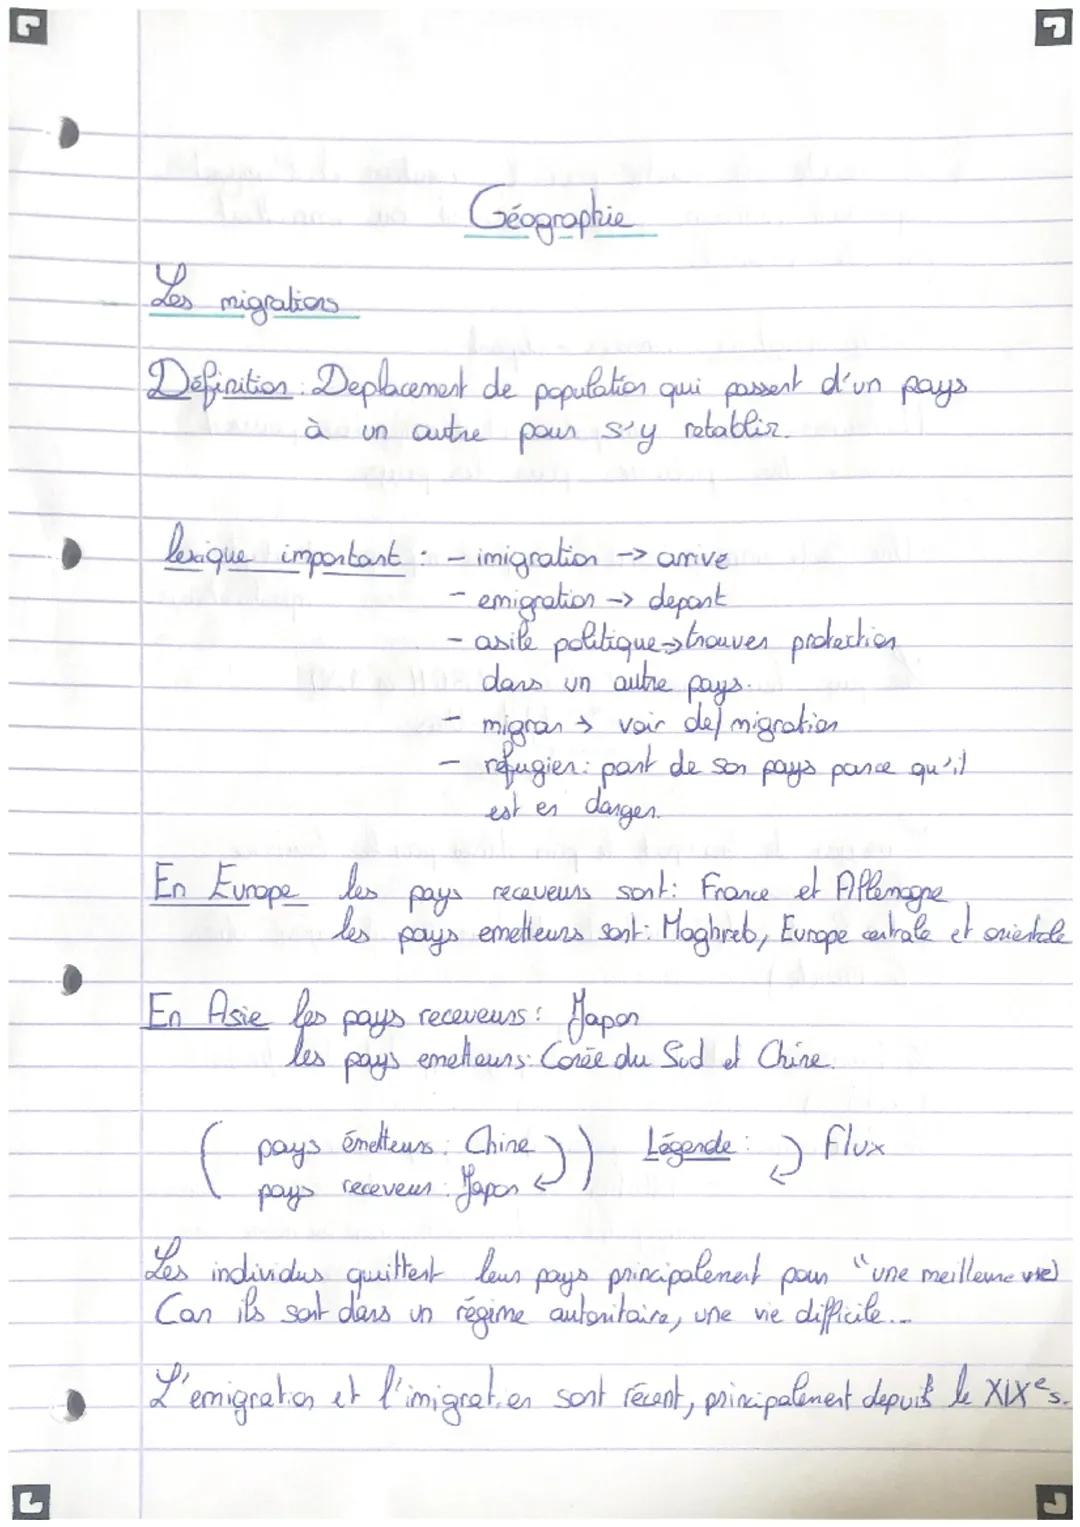 Géographie
Les migrations
Définition : Deplacement de population qui passent d'un pays
à un autre pour s'y retablir.
lexique important : - imigration -> arrive
- emigration -> depart
- asile politique -> trouver protection
dans un autre pays.
- migran -> voir def migration
- réfugier : part de son pays parce qu'il
est en danger.
En Europe les pays receveurs sont : France et Allemagne
les pays emetteurs sont : Maghreb, Europe centrale et orientale
En Asie les pays receveurs : Japon
les pays emetteurs : Corée du Sud et Chine.
( pays émetteurs : Chine ) Légende : Flux
pays receveur : Japon
Les individus quittent leur pays principalement pour "une meilleure vie)
Car ils sont dans un régime autoritaire, une vie difficile...
L'emigration et l'imigration sont récent, principalement depuis le XIXe s.